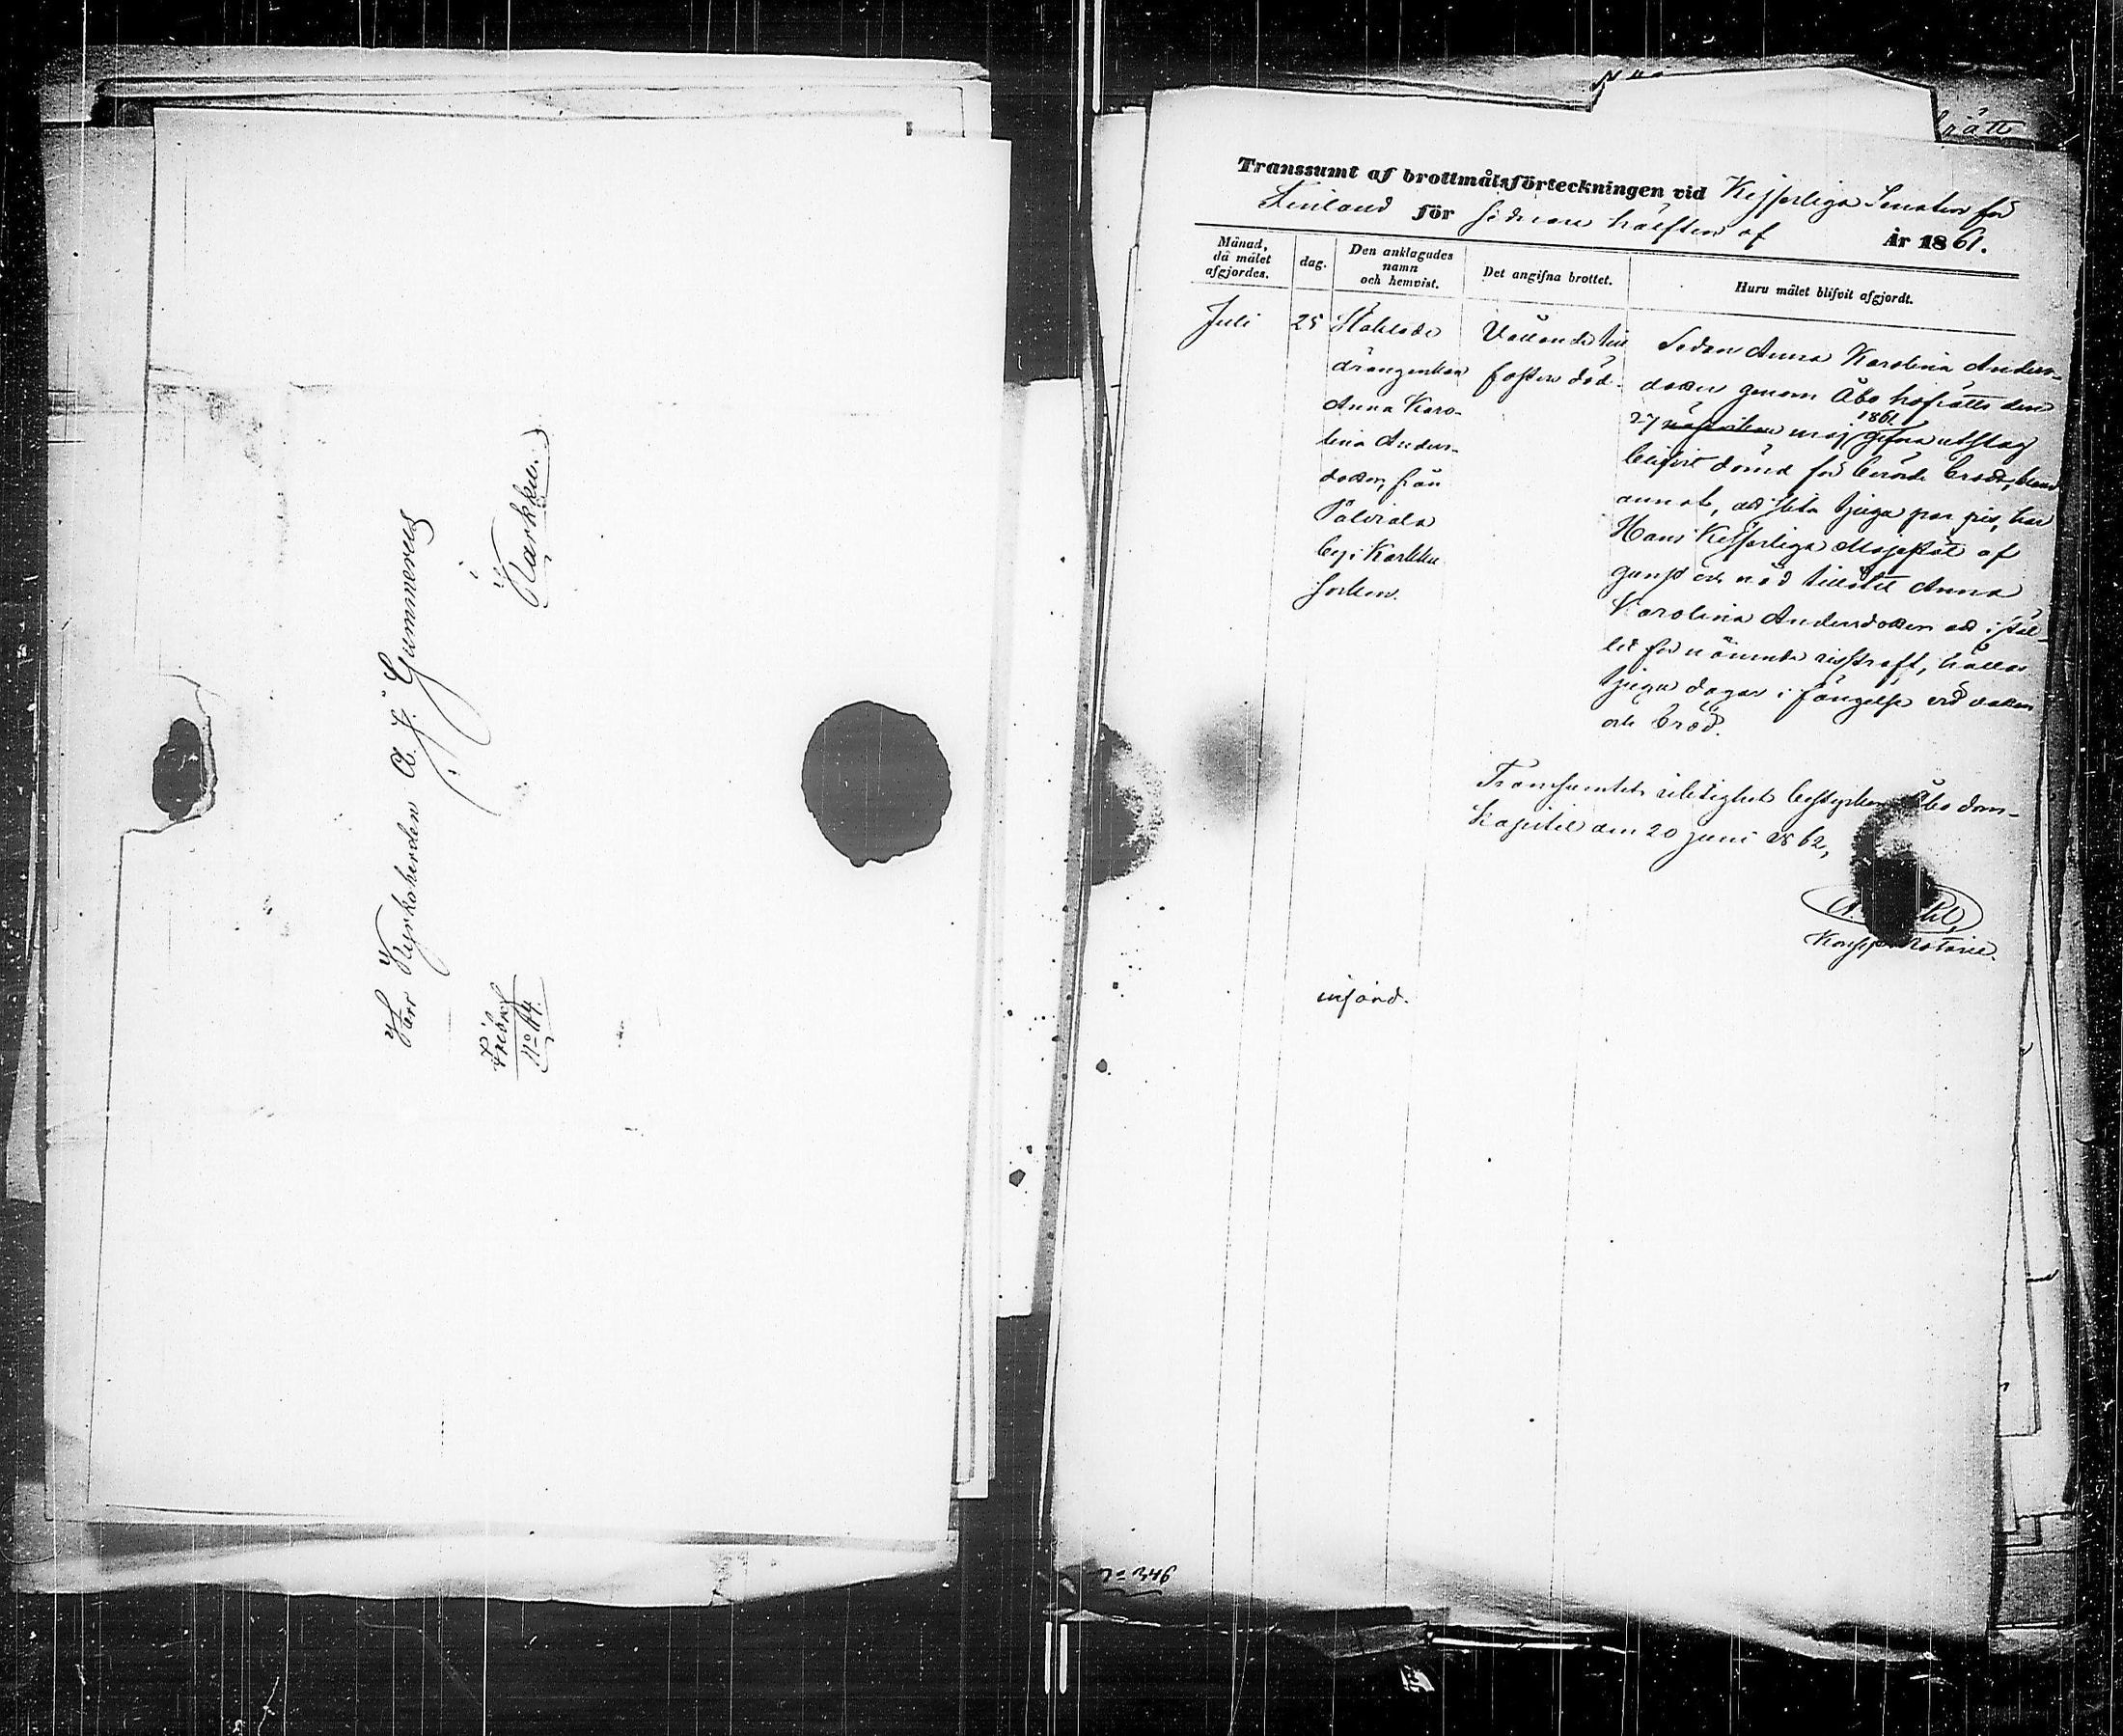 Herr Kyrkoherden A. J. Gummerus
i
Karkku.
Frebref
No 44.
rätt
Transsumt af brottmålsförteckningen vid Kejserliga Senaten för
Finland för sednare hälften af År 1861.
Månad, då målet afgjordes.
dag.
Den anklagades namn och hemvist.
Det angifna brottet.
Huru målet blifvit afgjordt.
Juli
25
drängenkan
Anna Karo-
lina Anders-
dotter, från
Palviala
by i Karkku
socken.
Vållande till
fosters död.
Sedan Anna Karolina Anders-
dotter genom Åbo hofrätts den
27 maj 1861 gifna utslag
blifvit dömd för berörde brott, bland
annat, att slita tjugu par ris, har
Hans Kejserliga Majestät af
gunst och nåd tillåtit Anna
Karolina Andersdotter att i stäl-
let för nämnda risstraff, hållas
tjugu dagar i fängelse vid vatten
och bröd.
Transsumtets riktighet bestyrker Åbo dom-
kapitel den 20 Juni 1862,
Notarie.
införd.
No 346